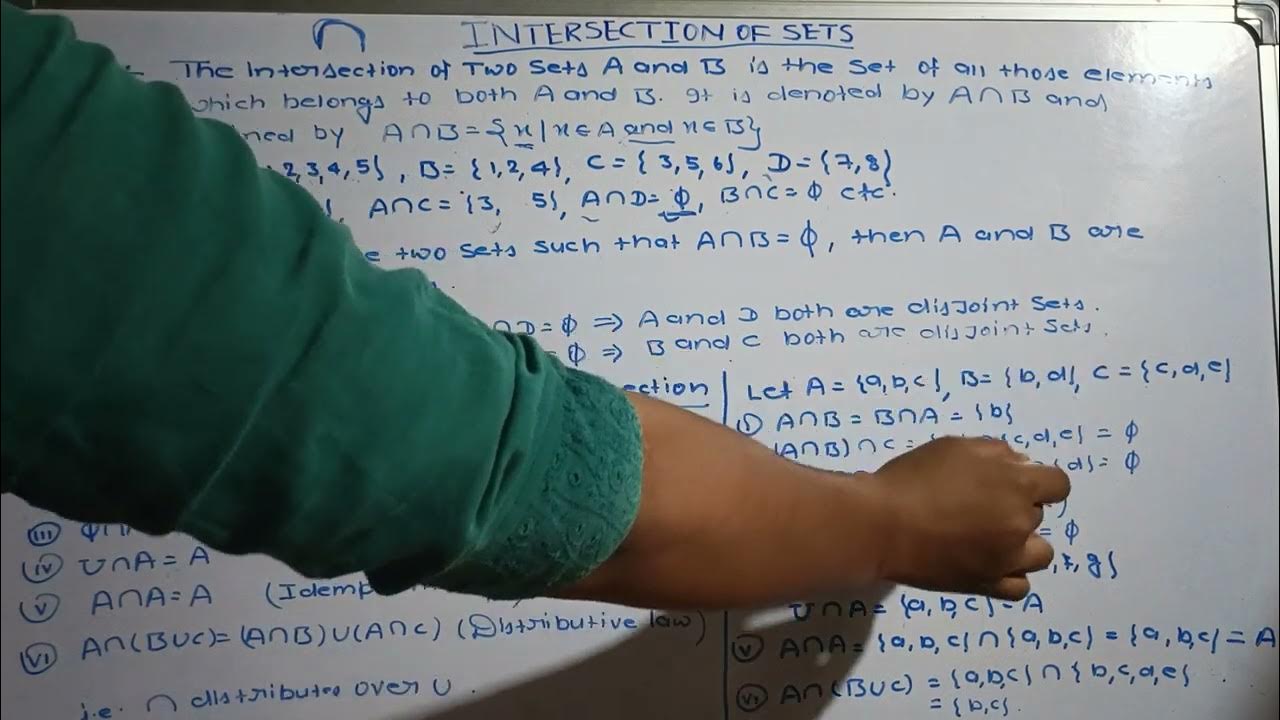 ∩ INTERSECTION OF SETS
The Intersection of Two Sets A and B is the set of all those elements
which belongs to both A and B. It is denoted by A∩B and
ined by A∩B = {x | x ∈ A and x ∈ B}
2,3,4,5}, B = {1,2,4}, C = {3,5,6}, D = {7,8}
A∩C = {3, 5}, A∩D = ϕ, B∩C = ϕ etc.
e two sets such that A∩B = ϕ, then A and B are
∩D = ϕ ⇒ A and D both are disjoint sets.
= ϕ ⇒ B and C both are disjoint sets.
section
(iii) ϕ
(iv) U∩A = A
(v) A∩A = A (Idemp
(vi) A∩(B∪C) = (A∩B)∪(A∩C) (Distributive law)
i.e. ∩ distributes over ∪.
Let A = {a,b,c}, B = {b,d}, C = {c,d,e}
(i) A∩B = B∩A = {b}
(A∩B)∩C = {c,d,e} = ϕ
{d} = ϕ
= ϕ
,g}
U∩A = {a,b,c} = A
(v) A∩A = {a,b,c}∩{a,b,c} = {a,b,c} = A
(vi) A∩(B∪C) = {a,b,c}∩{b,c,d,e}
= {b,c}.